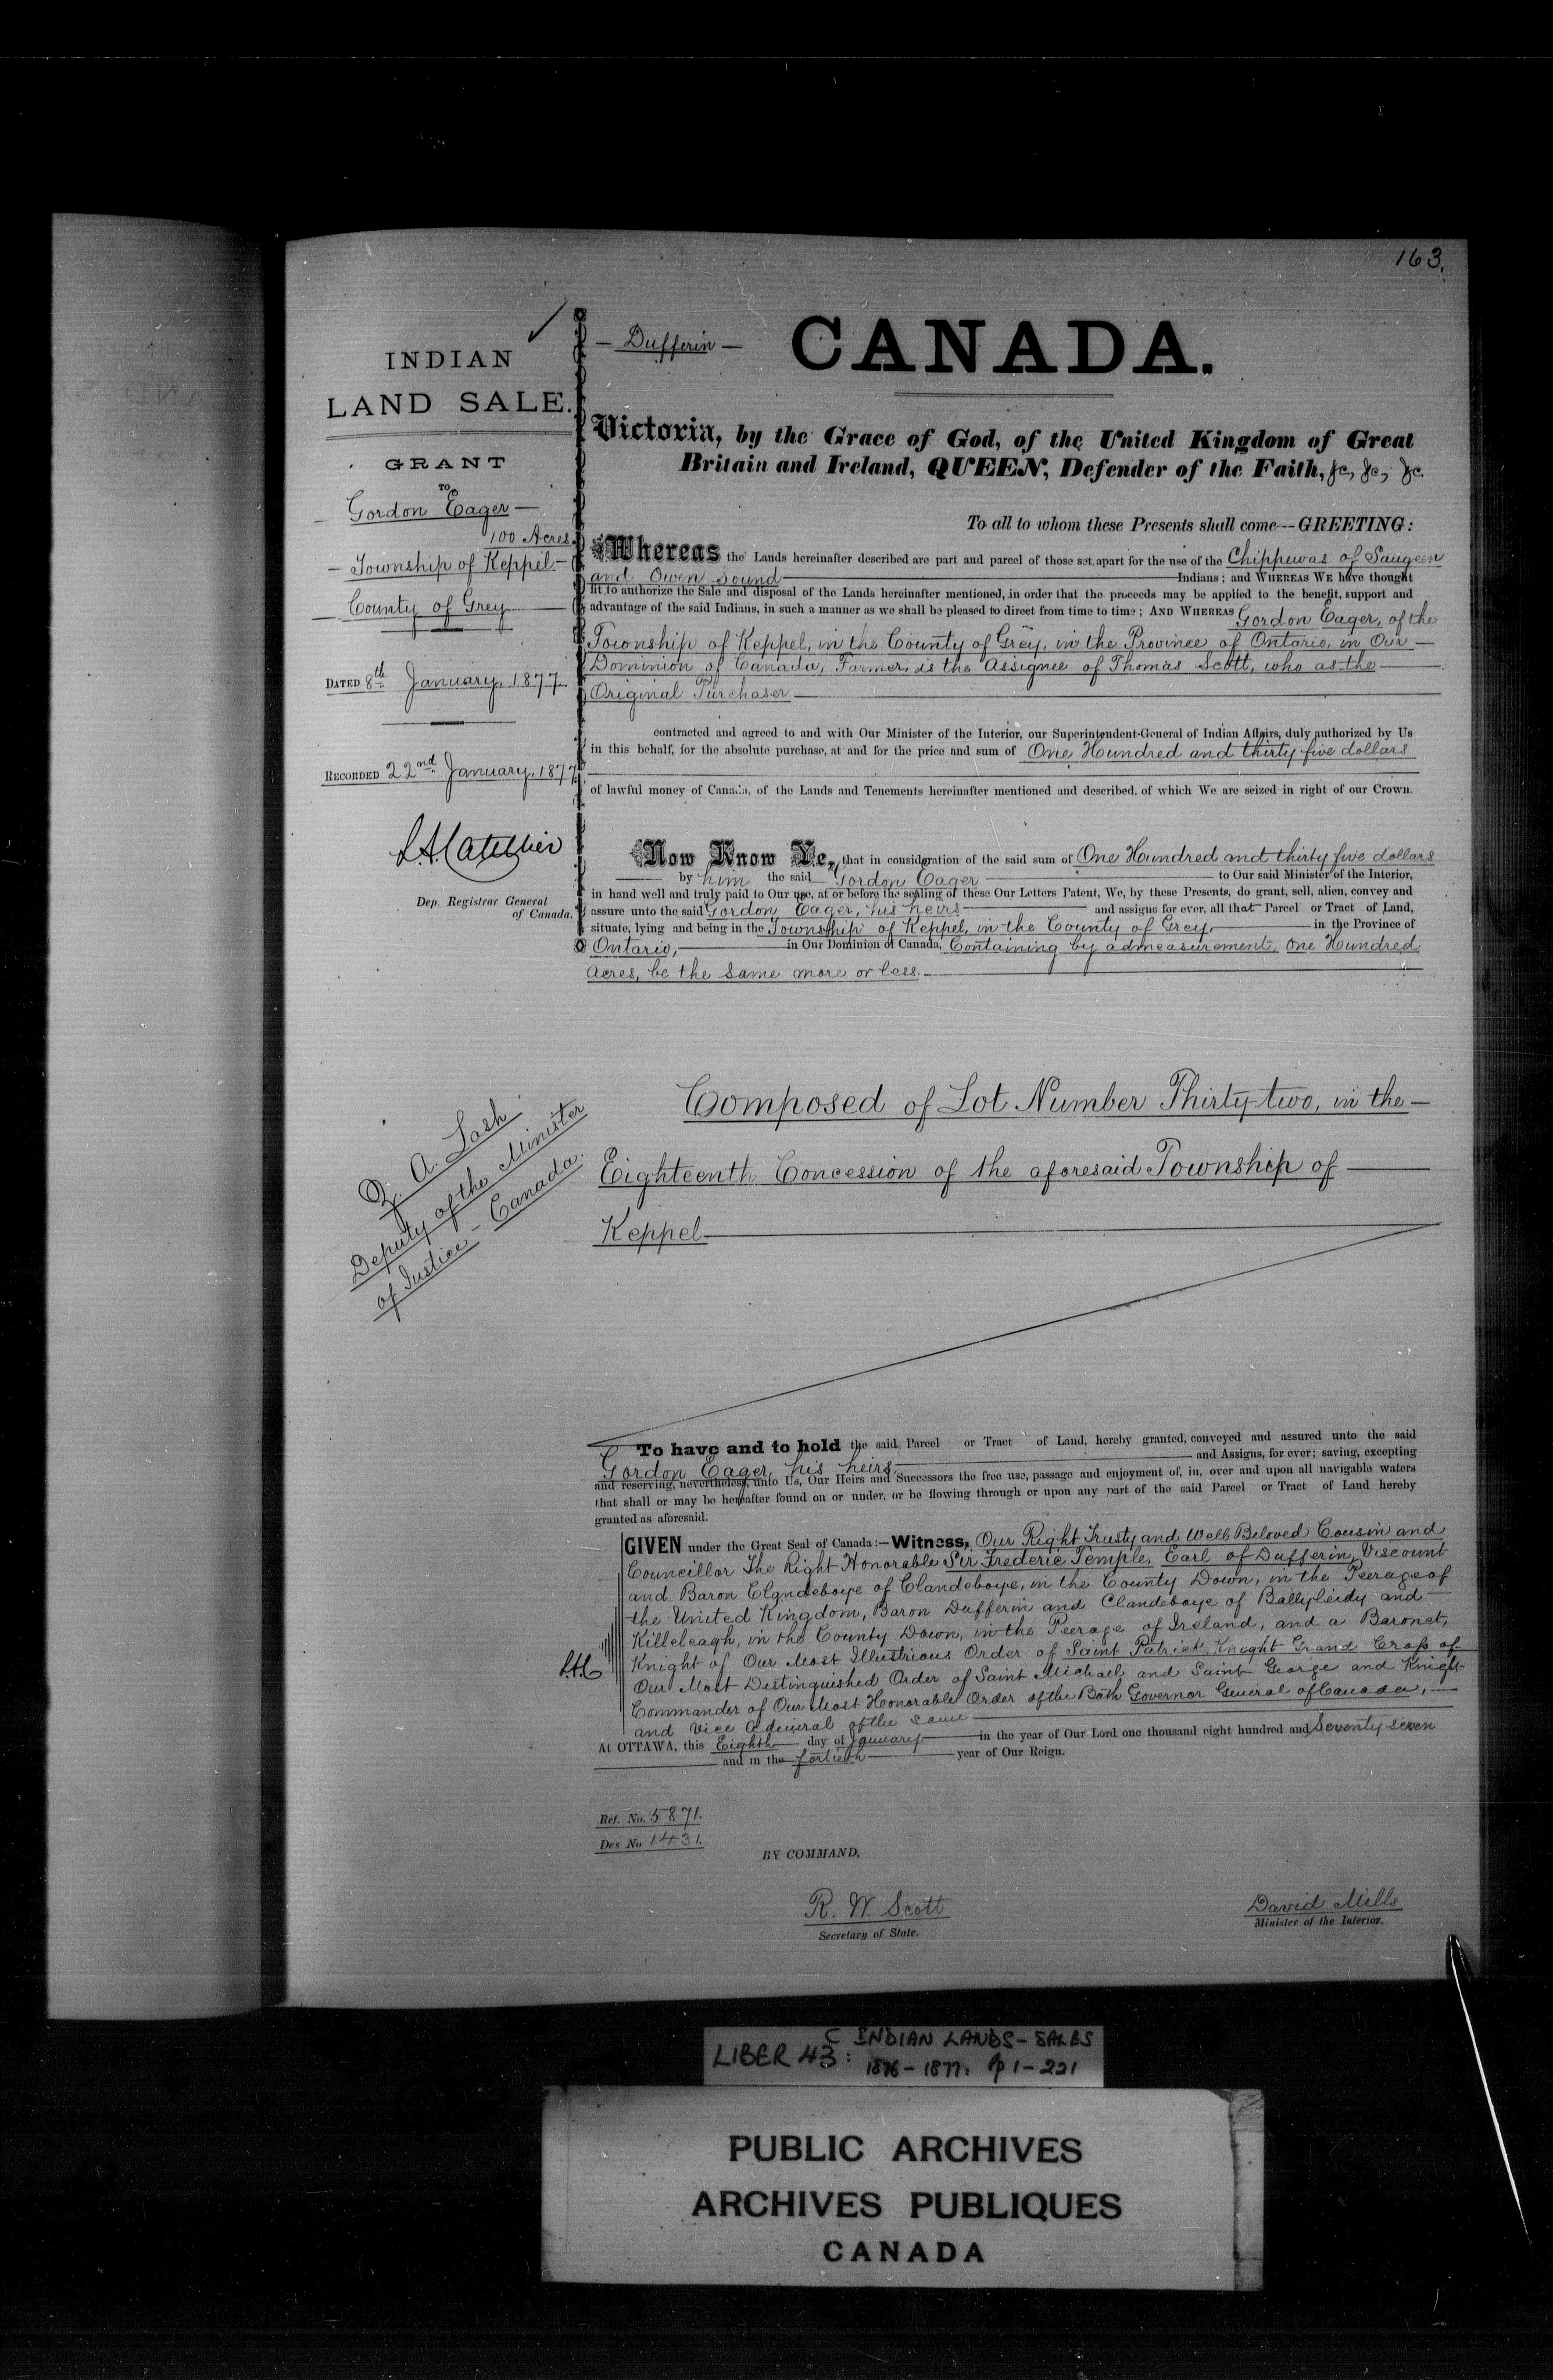 163.
INDIAN
LAND SALE.
GRANT
TO
— Gordon Eager —
100 Acres.
— Township of Keppel. —
— County of Grey —
DATED 8th January, 1877.
RECORDED 22nd January, 1877.
Dep. Registrar General
of Canada.
Z. A. Lash
Deputy of the Minister
of Justice – Canada.
— Dufferin —
CANADA.
Victoria, by the Grace of God, of the United Kingdom of Great
Britain and Ireland, QUEEN, Defender of the Faith, &c, &c, &c.
To all to whom these Presents shall come---GREETING:
Whereas the Lands hereinafter described are part and parcel of those set apart for the use of the Chippewas of Saugeen
and Owen Sound Indians; and WHEREAS WE have thought
fit to authorize the Sale and disposal of the Lands hereinafter mentioned, in order that the proceeds may be applied to the benefit, support and
advantage of the said Indians, in such a manner as we shall be pleased to direct from time to time; AND WHEREAS Gordon Eager, of the
Township of Keppel, in the County of Grey, in the Province of Ontario, in Our —
Dominion of Canada, Farmer, is the Assignee of Thomas Scott, who as the —
Original Purchaser —
contracted and agreed to and with Our Minister of the Interior, our Superintendent-General of Indian Affairs, duly authorized by Us
in this behalf, for the absolute purchase, at and for the price and sum of One Hundred and thirty five dollars
of lawful money of Canada, of the Lands and Tenements hereinafter mentioned and described, of which We are seized in right of our Crown.
Now Know Ye, that in consideration of the said sum of One Hundred and thirty five dollars
by him the said Gordon Eager to Our said Minister of the Interior,
in hand well and truly paid to Our use, at or before the sealing of these Our Letters Patent, We, by these Presents, do grant, sell, alien, convey and
assure unto the said Gordon Eager, his heirs and assigns for ever, all that Parcel or Tract of Land,
situate, lying and being in the Township of Keppel, in the County of Grey, in the Province of
Ontario, in Our Dominion of Canada, Containing by admeasurement, One Hundred
Acres, be the same more or less. —
Composed of Lot Number Thirty-two, in the —
Eighteenth Concession of the aforesaid Township of —
Keppel —
To have and to hold the said Parcel or Tract of Land, hereby granted, conveyed and assured unto the said
Gordon Eager, his heirs and Assigns, for ever; saving, excepting
and reserving, nevertheless, unto Us, Our Heirs and Successors the free use, passage and enjoyment of, in, over and upon all navigable waters
that shall or may be hereafter found on or under, or be flowing through or upon any part of the said Parcel or Tract of Land hereby
granted as aforesaid.
GIVEN under the Great Seal of Canada:—Witness, Our Right Trusty and Well Beloved Cousin and
Councillor The Right Honorable Sir Frederic Temple, Earl of Dufferin, Viscount
and Baron Clandeboye of Clandeboye, in the County Down, in the Peerage of
the United Kingdom, Baron Dufferin and Clandeboye of Ballyleidy and —
Killeleagh, in the County Down, in the Peerage of Ireland, and a Baronet,
Knight of Our Most Illustrious Order of Saint Patrick, Knight Grand Cross of
Our Most Distinguished Order of Saint Michael and Saint George and Knight
Commander of Our Most Honorable Order of the Bath Governor General of Canada, —
and Vice Admiral of the same —
At OTTAWA, this Eighth day of January in the year of Our Lord one thousand eight hundred and Seventy-seven
and in the fortieth year of Our Reign.
Ref. No. 5871.
Des No 1431.
BY COMMAND,
R. W. Scott
Secretary of State.
David Mills
Minister of the Interior.
LIBER 43C: INDIAN LANDS – SALES
1876 – 1877. pp 1 – 221
PUBLIC ARCHIVES
ARCHIVES PUBLIQUES
CANADA